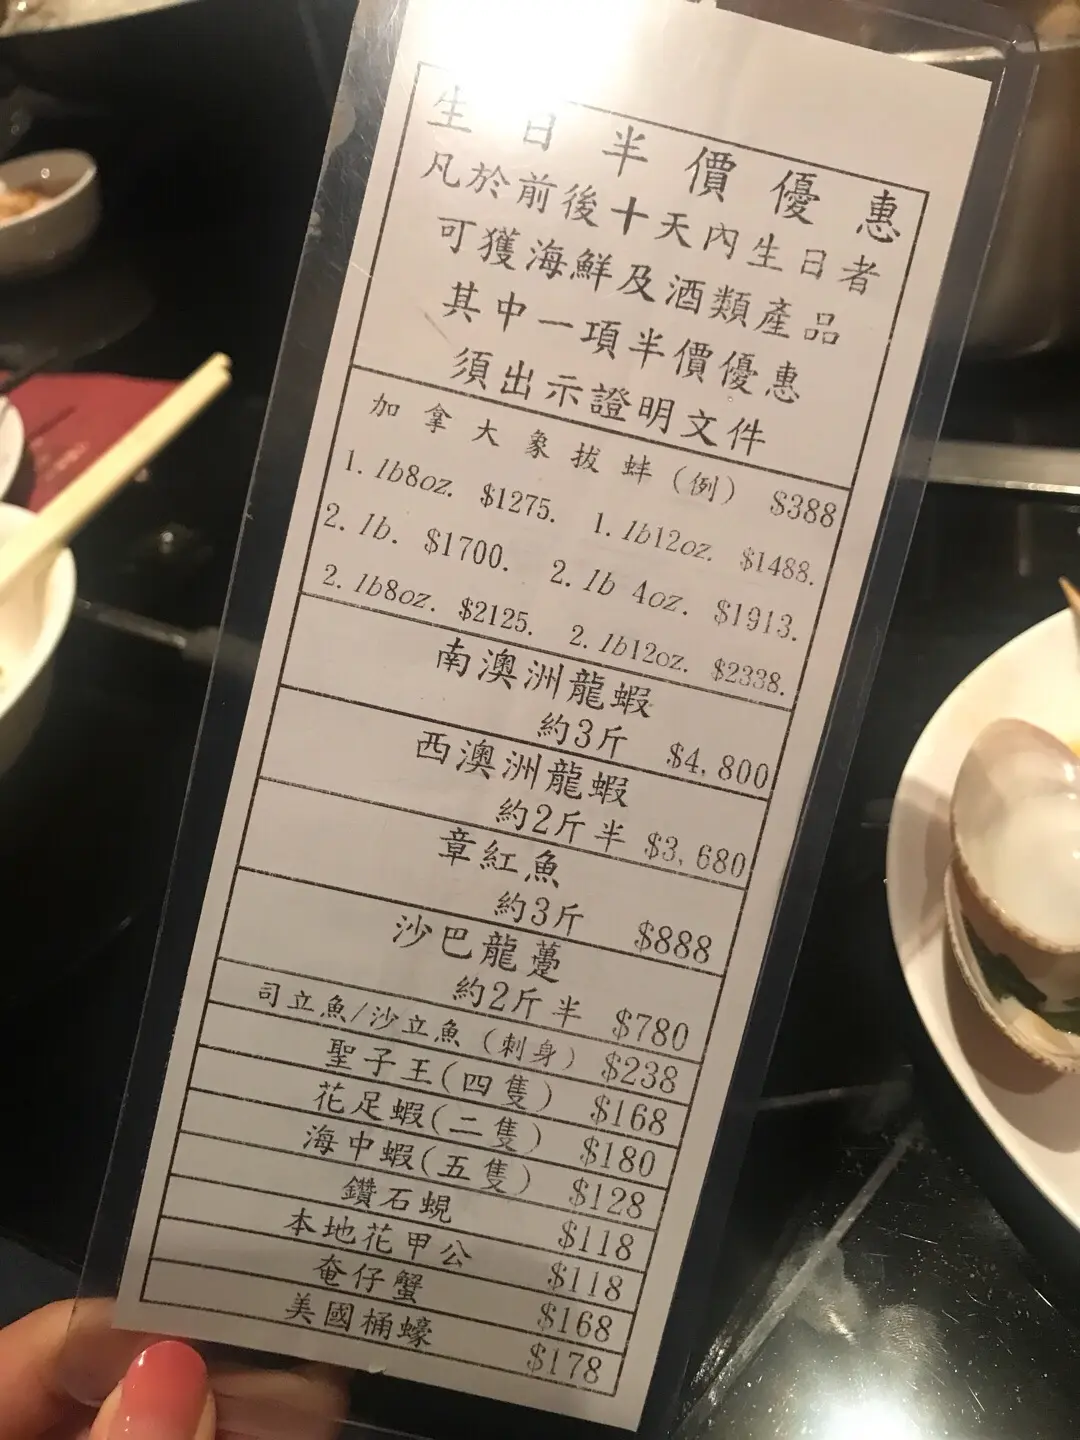 生日半價優惠
凡於前後十天內生日者
可獲海鮮及酒類產品
其中一項半價優惠
須出示證明文件
加拿大象拔蚌(例) $388
1. 1b8oz. $1275. 1. 1b12oz. $1488.
2. 1b. $1700. 2. 1b 4oz. $1913.
2. 1b8oz. $2125. 2. 1b12oz. $2338.
南澳洲龍蝦
約3斤 $4,800
西澳洲龍蝦
約2斤半 $3,680
章紅魚
約3斤 $888
沙巴龍躉
約2斤半 $780
司立魚/沙立魚(刺身) $238
聖子王(四隻) $168
花足蝦(二隻) $180
海中蝦(五隻) $128
鑽石蜆 $118
本地花甲公 $118
奄仔蟹 $168
美國桶蠔 $178